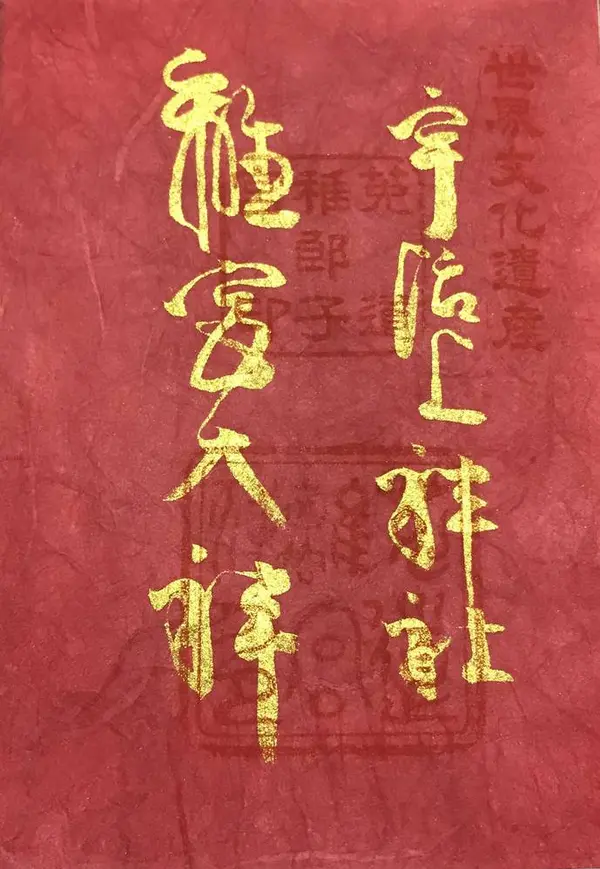 世界文化遺産
宇治上神社
離宮大神
菟道
稚郎子
印